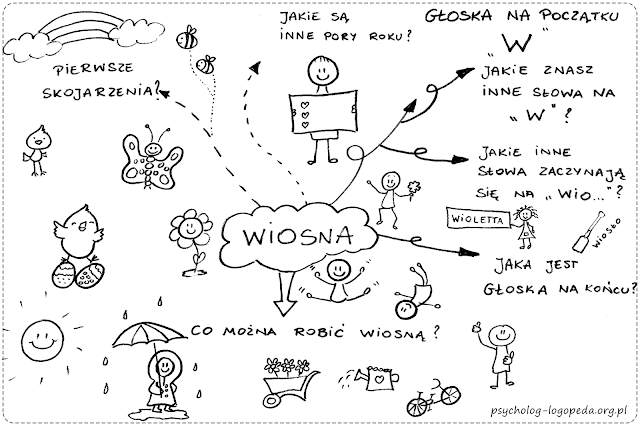 PIERWSZE
SKOJARZENIA?
JAKIE SĄ
INNE PORY ROKU?
GŁOSKA NA POCZĄTKU
„W"
JAKIE ZNASZ
INNE SŁOWA NA
„W"?
JAKIE INNE
SŁOWA ZACZYNAJĄ
SIĘ NA „WIO..."?
WIOLETTA
WIOSŁO
WIOSNA
JAKA JEST
GŁOSKA NA KOŃCU?
CO MOŻNA ROBIĆ WIOSNĄ?
psycholog-logopeda.org.pl